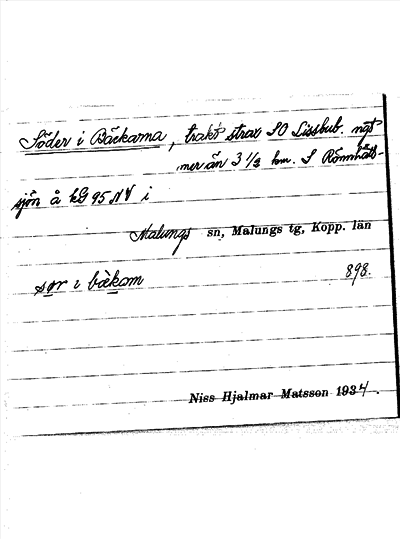 Söder i Bäckarna, trakt strax SO Lissbub. ngt
mer än 3 1/2 km. S Rönnhåls-
sjön å kG 95 NV i
Malungs sn, Malungs tg, Kopp. län
sør i bäkom 898.
Niss Hjalmar Matsson 1934.